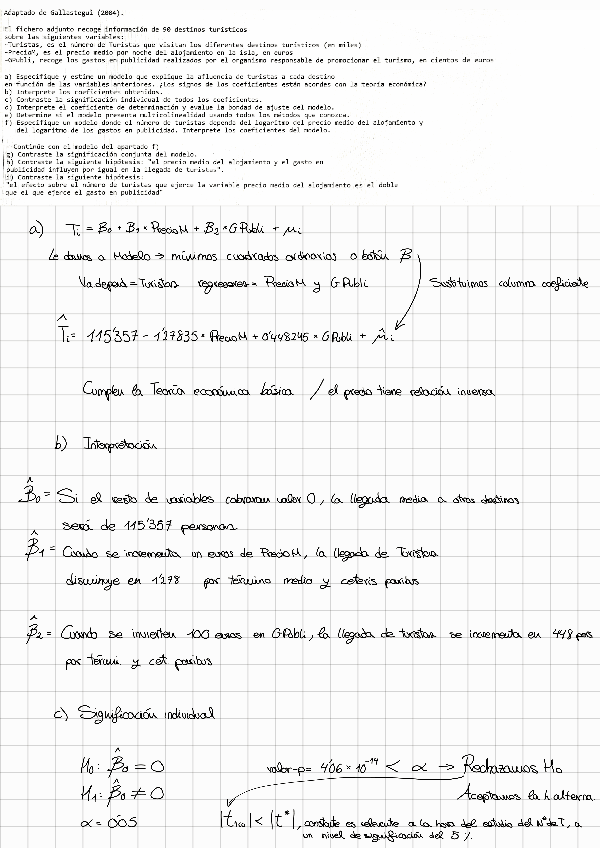 Adaptado de Gallastegui (2004).
El fichero adjunto recoge información de 90 destinos turísticos
sobre las siguientes variables:
-Turistas, es el número de Turistas que visitan los diferentes destinos turísticos (en miles)
-PrecioM, es el precio medio por noche del alojamiento en la isla, en euros
-GPubli, recoge los gastos en publicidad realizados por el organismo responsable de promocionar el turismo, en cientos de euros
a) Especifique y estime un modelo que explique la afluencia de turistas a cada destino
en función de las variables anteriores. ¿Los signos de los coeficientes están acordes con la teoría económica?
b) Interprete los coeficientes obtenidos.
c) Contraste la significación individual de todos los coeficientes.
d) Interprete el coeficiente de determinación y evalue la bondad de ajuste del modelo.
e) Determine si el modelo presenta multicolinealidad usando todos los métodos que conozca.
f) Especifique un modelo donde el número de turistas dependa del logaritmo del precio medio del alojamiento y
del logaritmo de los gastos en publicidad. Interprete los coeficientes del modelo.
Continúe con el modelo del apartado f)
g) Contraste la significación conjunta del modelo.
h) Contraste la siguiente hipótesis: "el precio medio del alojamiento y el gasto en
publicidad influyen por igual en la llegada de turistas".
i) Contraste la siguiente hipótesis:
"el efecto sobre el número de turistas que ejerce la variable precio medio del alojamiento es el doble
que el que ejerce el gasto en publicidad"
a) Ti = B0 + B1 * PrecioM + B2 * G Publi + μi
Le damos a Modelo → mínimos cuadrados ordinarios o botón β
Va depend = Turistas regresores = PrecioM y G Publi
Sustituimos columna coeficiente
T̂i = 115'357 - 1'27835 * PrecioM + 0'448245 * G Publi + μ̂i
Cumplen la Teoría económica básica / el precio tiene relación inversa
b) Interpretación
β̂0 = Si el resto de variables cobraran valor 0, la llegada media a otros destinos
será de 115'357 personas
β̂1 = Cuando se incrementa un euros de PrecioM, la llegada de Turistas
disminuye en 1'278 por término medio y ceteris paribus
β̂2 = Cuando se invierten 100 euros en G Publi, la llegada de turistas se incrementa en 448 pers
por términ y cet paribus
c) Significación individual
H0: β̂0 = 0
valor-p = 4'06 * 10⁻¹⁴ < α → Rechazamos H0
H1: β̂0 ≠ 0
Aceptamos la h alterna.
α = 0'05
< |t*|, constante es relevante a la hora del estudio del Nº de T, a
un nivel de significación del 5 %.